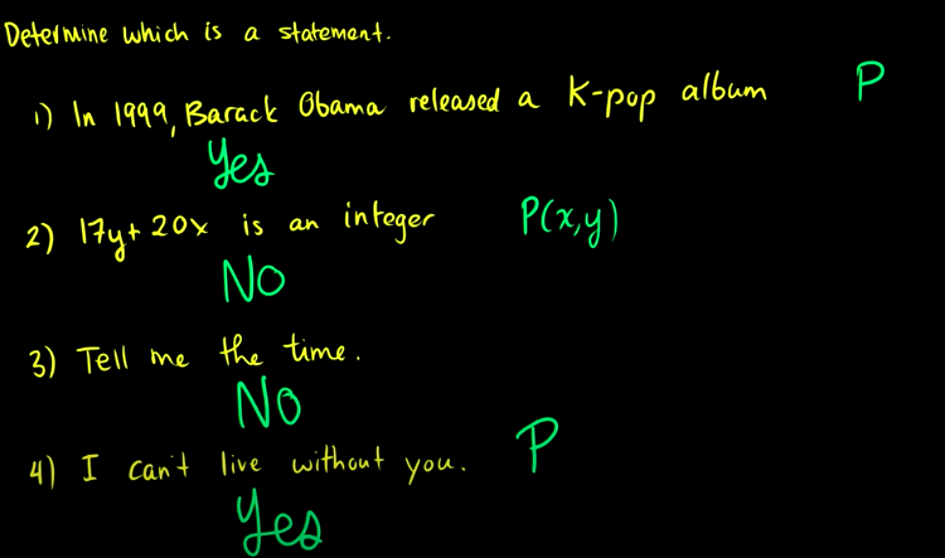 Determine which is a statement.
1) In 1999, Barack Obama released a K-pop album P
Yes
2) 17y+20x is an integer P(x,y)
NO
3) Tell me the time.
NO
4) I can't live without you. P
Yes